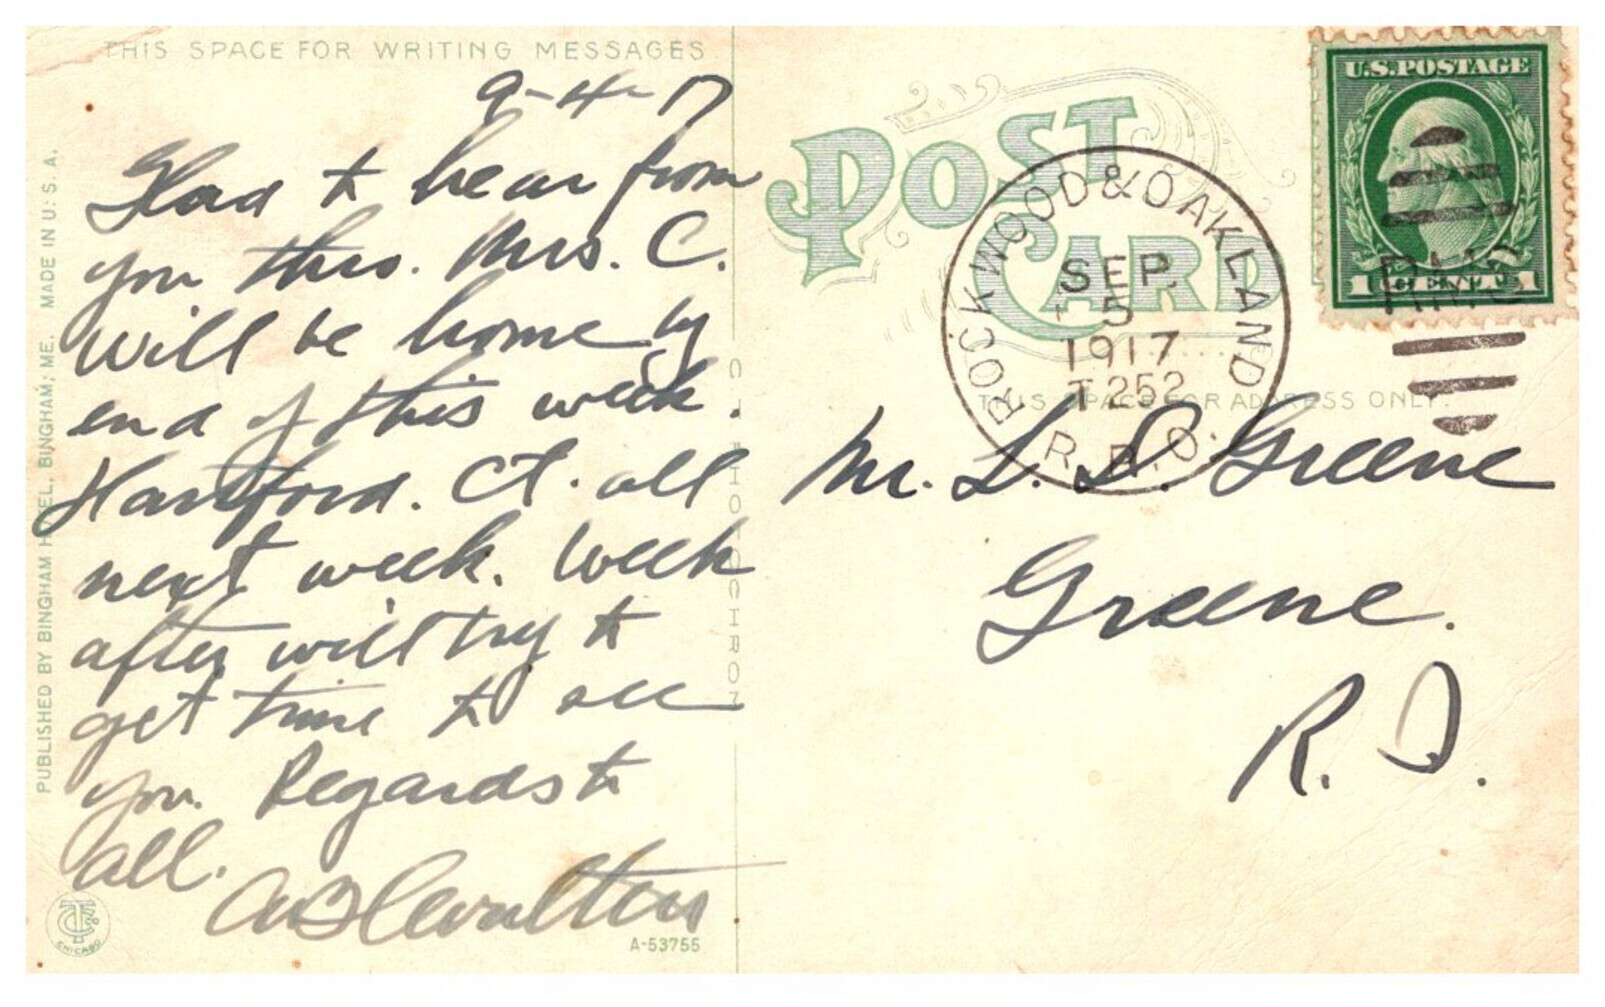 THIS SPACE FOR WRITING MESSAGES
9-4-17
Glad to hear from
you this. Mrs. C.
will be home by
end of this week.
Hartford. Ct. all
next week. Week
after will try to
get time to see
you. Regards to
all.
PUBLISHED BY BINGHAM HOTEL, BINGHAM, ME. MADE IN U. S. A.
CHICAGO
A-53755
POST CARD
ROCKWOOD & OAKLAND
SEP.
5
1917
T 252
R.P.O.
U.S. POSTAGE
1 CENT 1
RMS
THIS SPACE FOR ADDRESS ONLY.
Mr. L. D. Greene
Greene.
R. D.